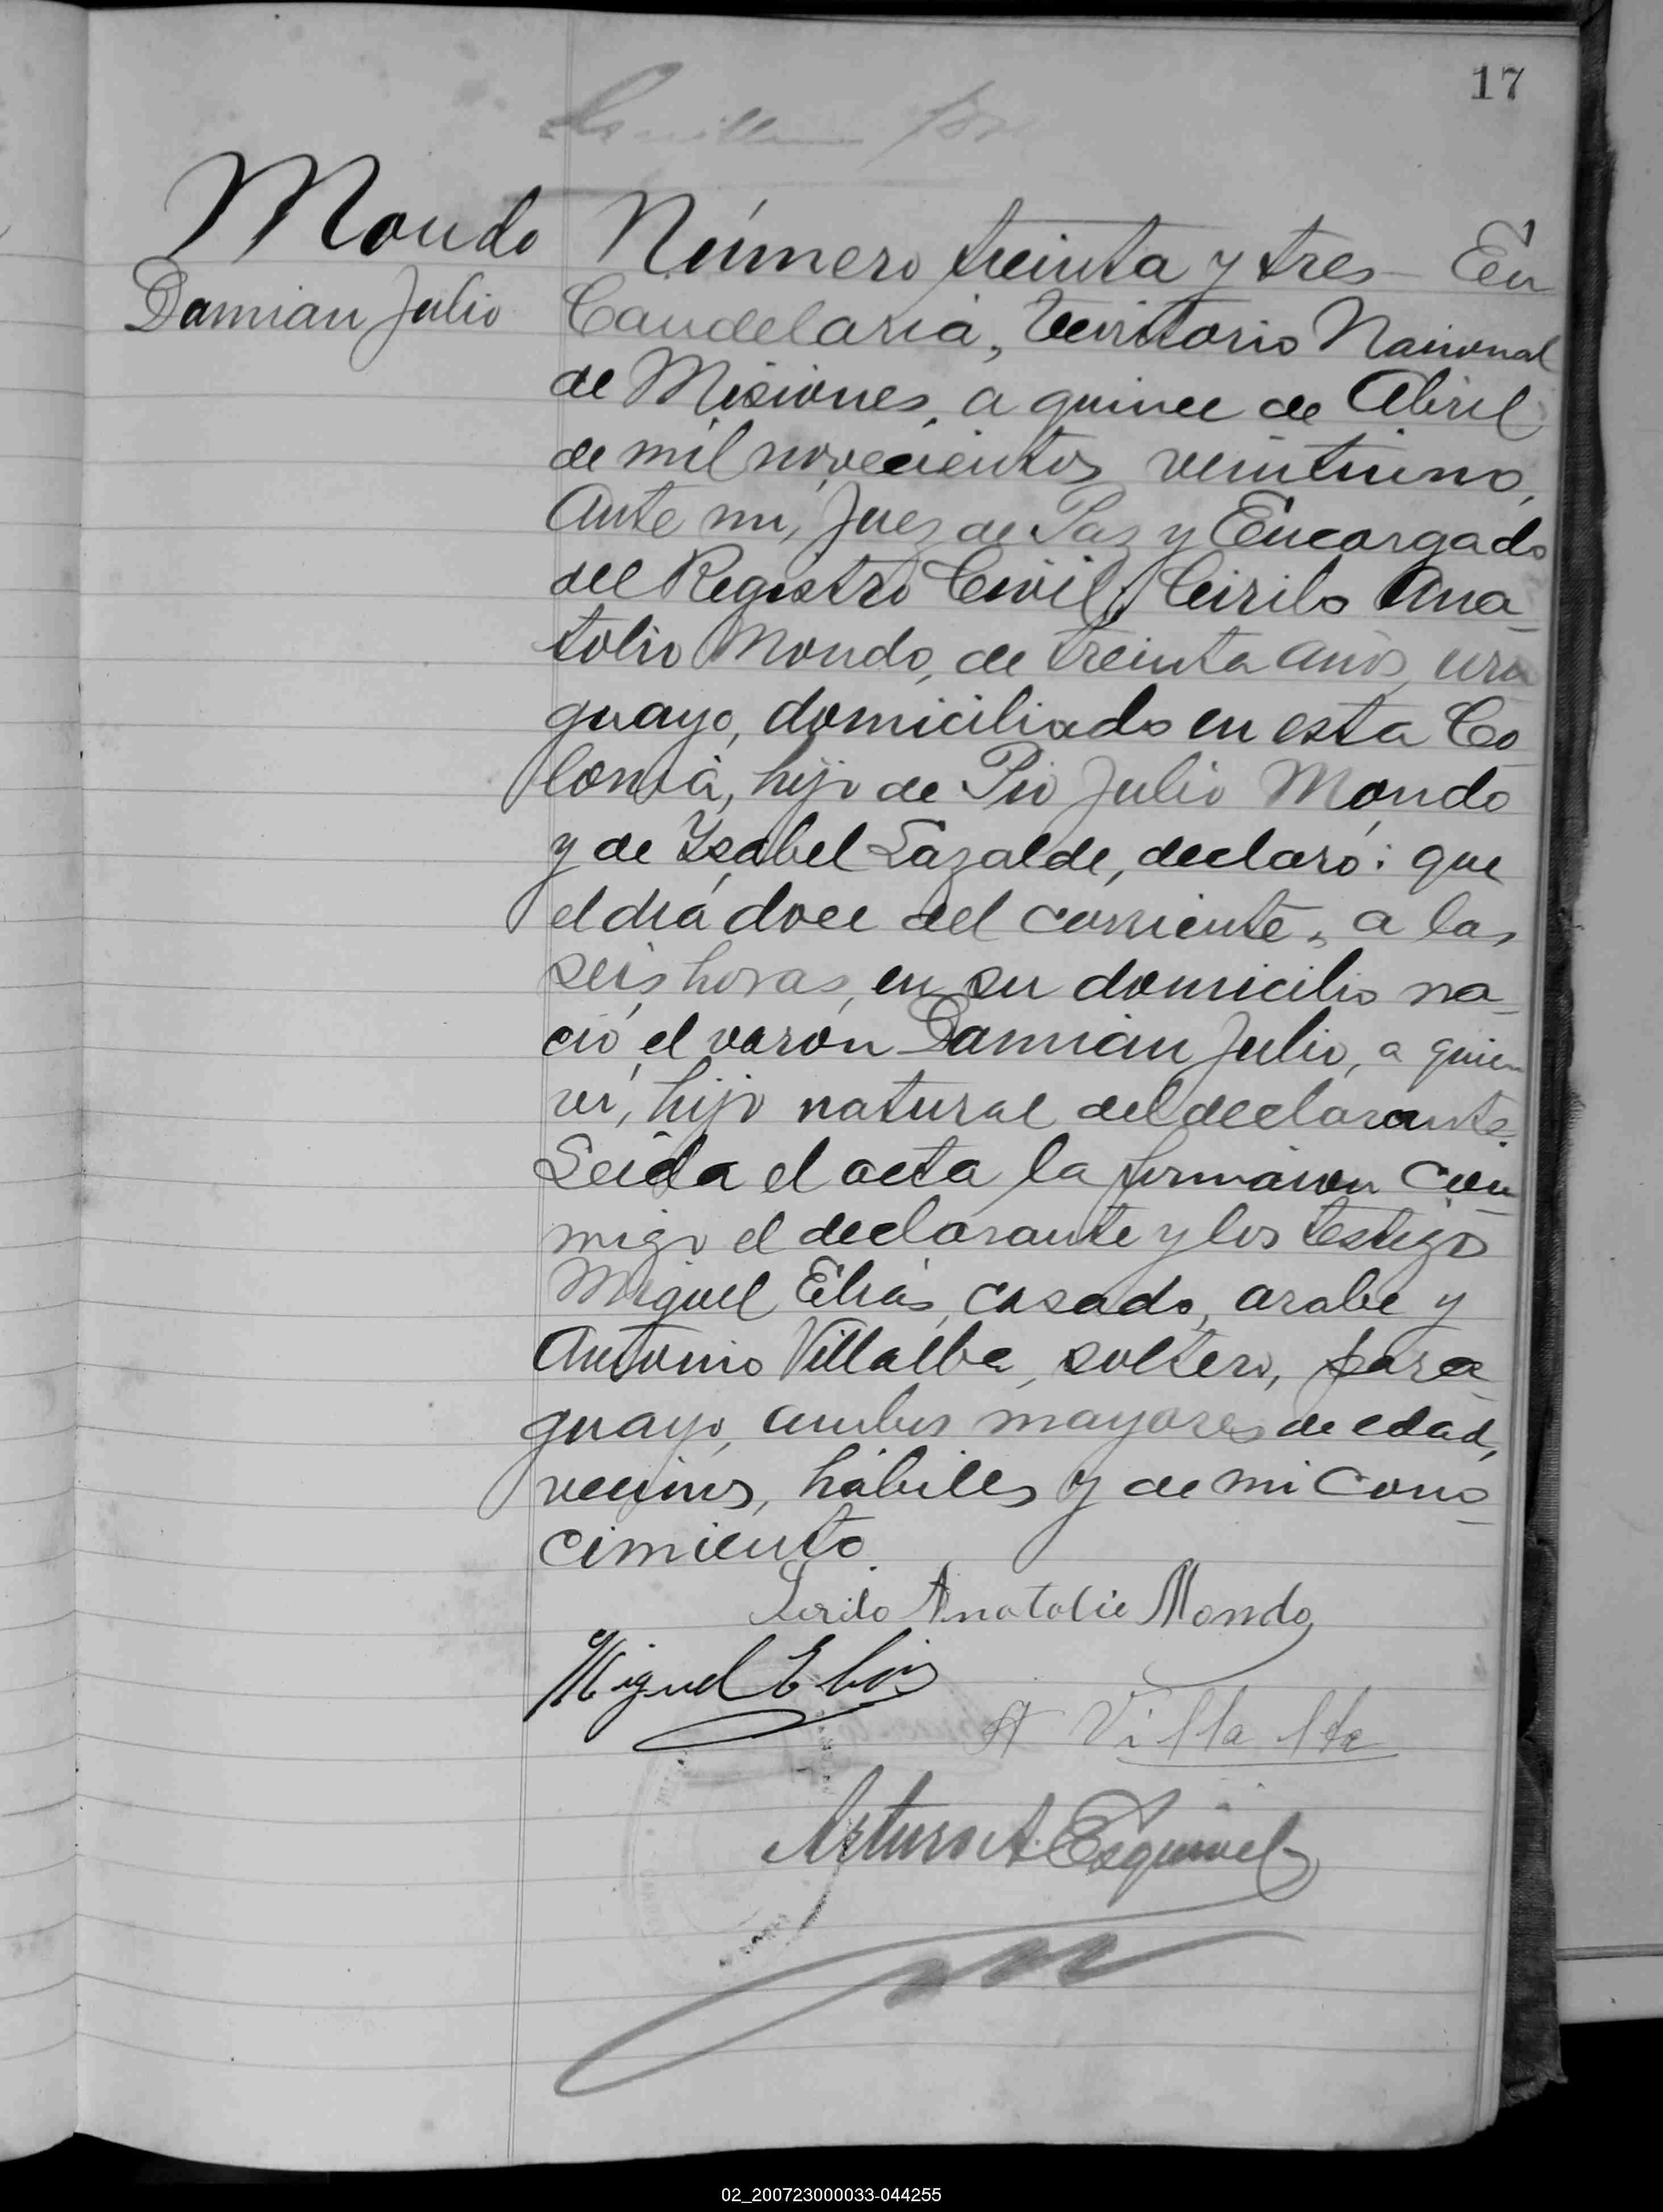 17
Mondo
Damian Julio
Número treinta y tres - En
Candelaria, Territorio Nacional
de Misiones, a quince de Abril
de mil novecientos veintiuno,
Ante mi, Juez de Paz y Encargado
del Registro Civil, Cirilo Ana-
tolio Mondo, de treinta años, uru
guayo, domiciliado en esta Co-
lonia, hijo de Pio Julio Mondo
y de Ysabel Lazalde, declaró: que
el dia doce del corriente, a las
seis horas, en su domicilio na-
ció el varón Damián Julio, a quien
ví, hijo natural del declarante.
Leida el acta la firmaron con-
migo el declarante y los testigos
Miguel Elias, casado, arabe y
Antonio Villalba, soltero, para-
guayo, ambos mayores de edad,
vecinos, hábiles y de mi cono-
cimiento.
Sirilo Anatolio Mondo
Miguel Elias
A Villalba
Arturo A. Esquivel
02_200723000033-044255